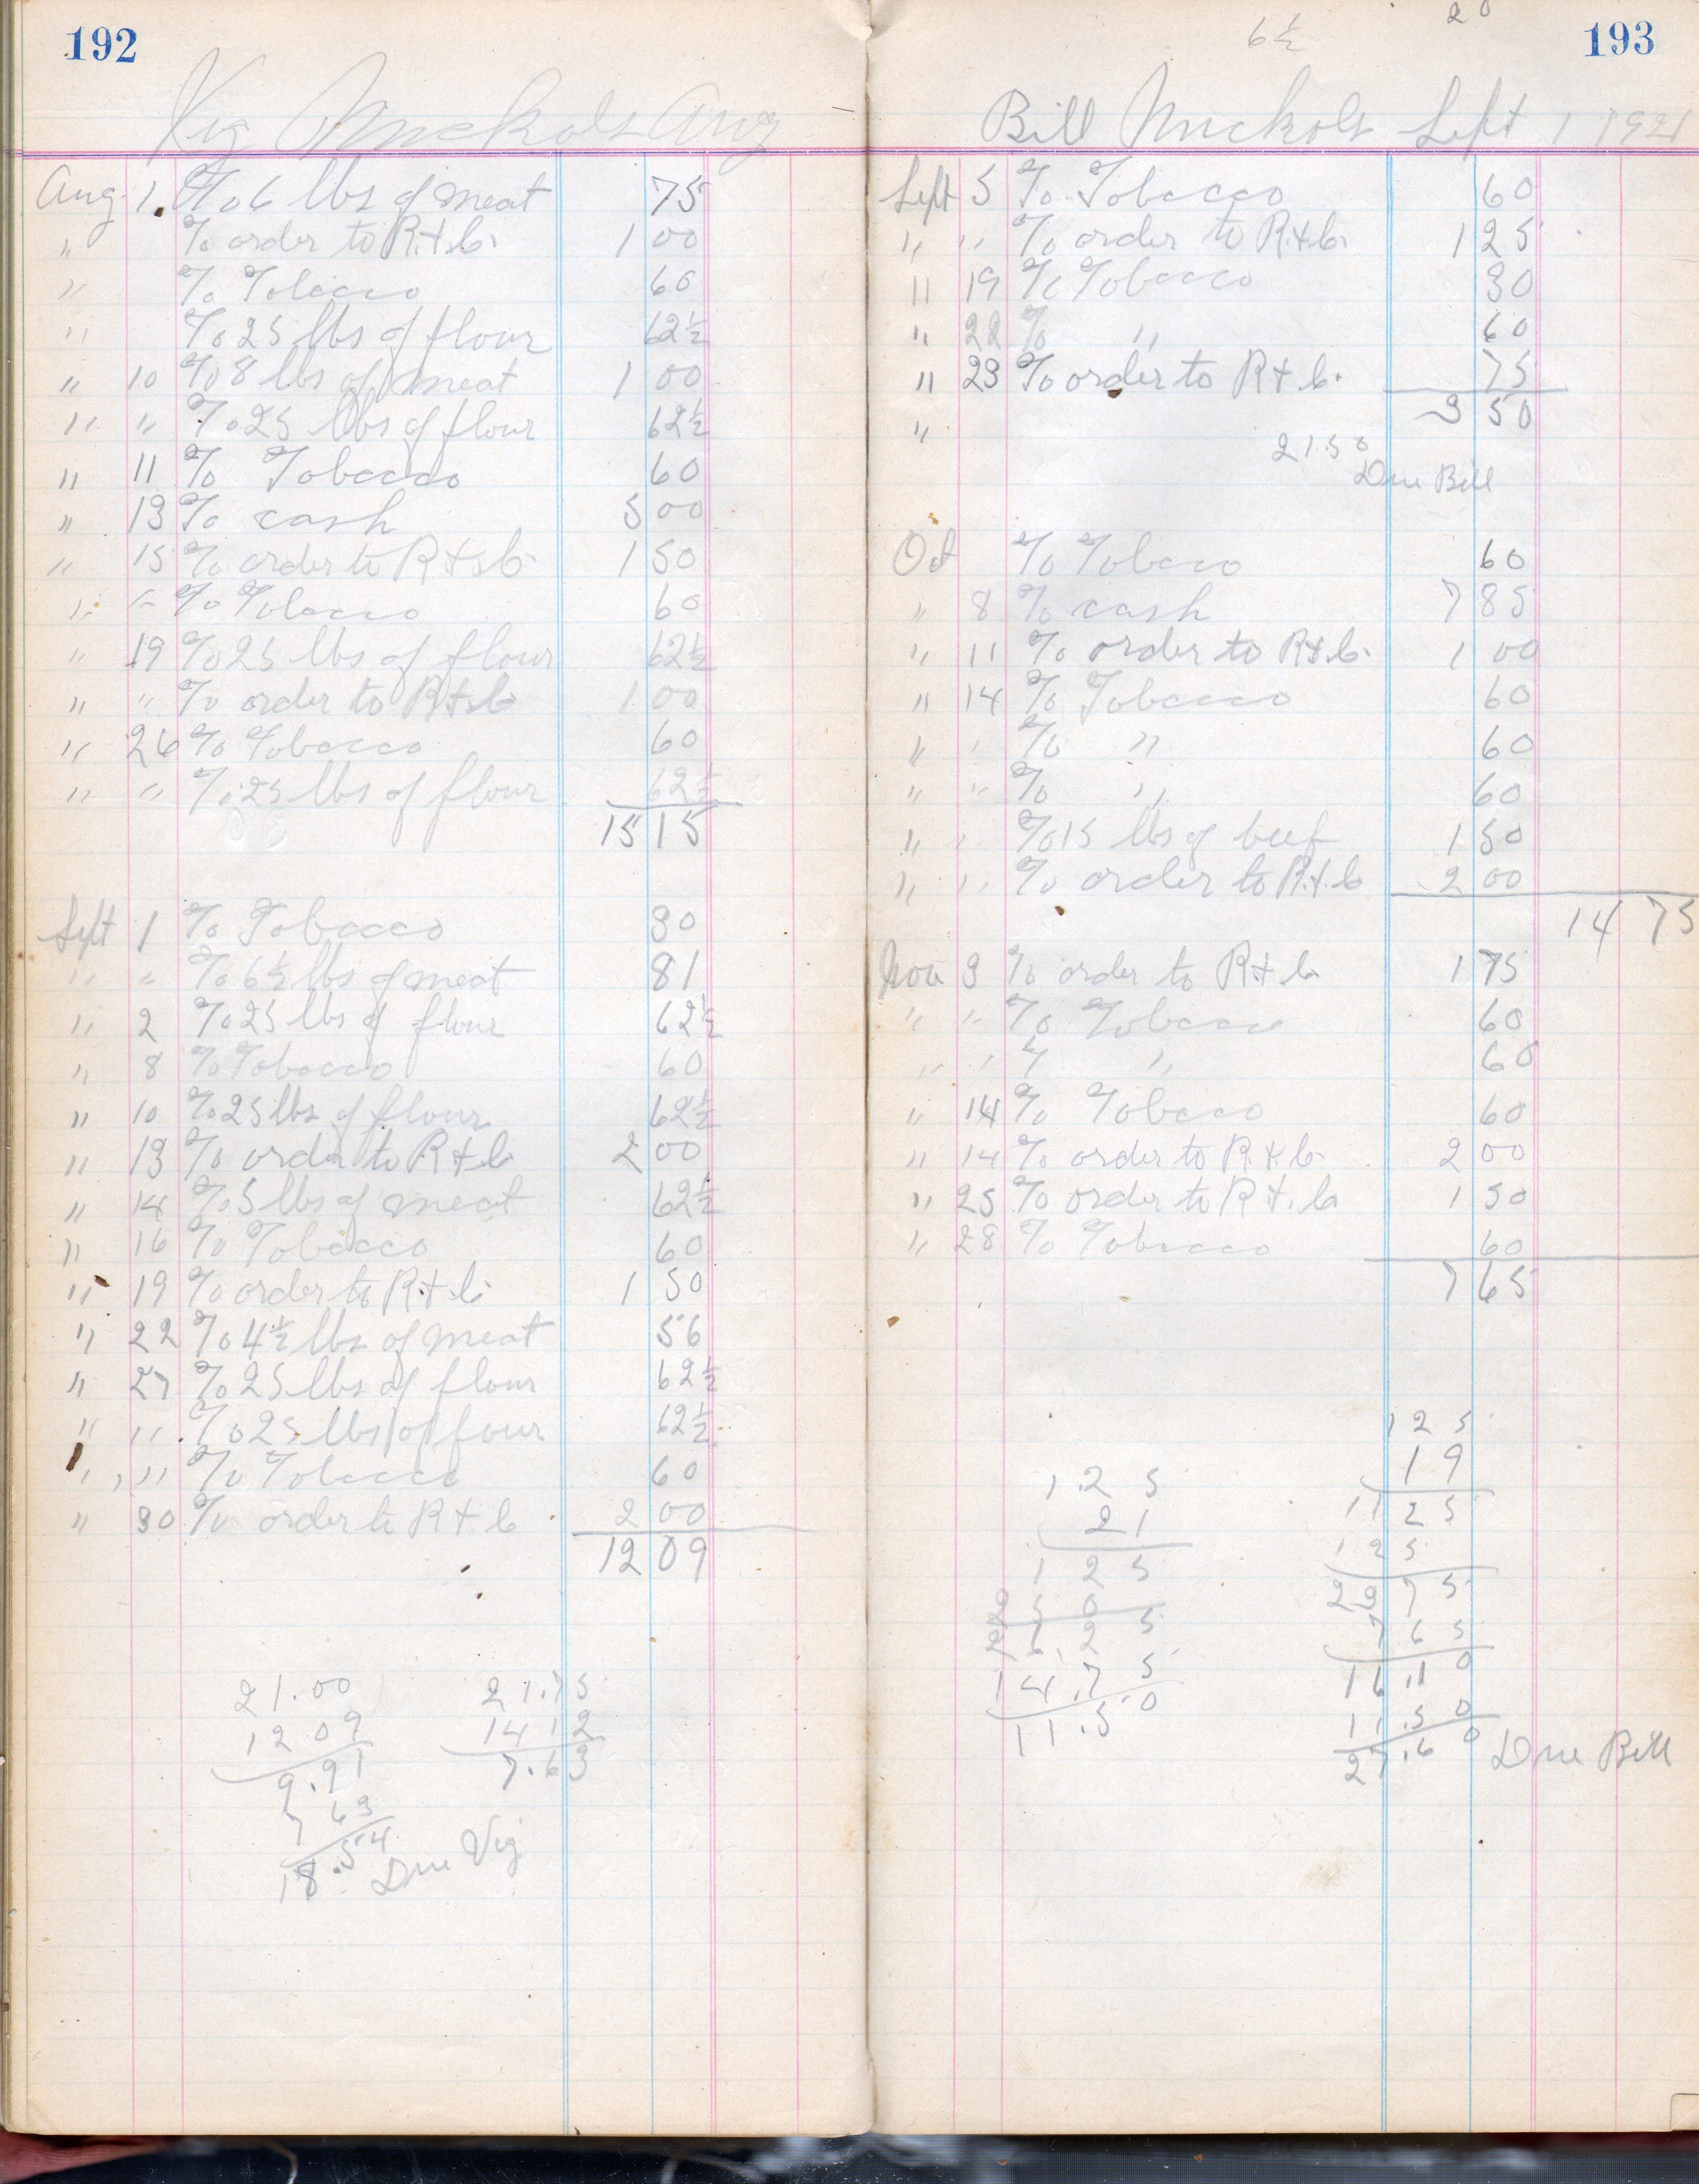 192
Vig Nuckols Aug
Aug 1 To 6 lbs of meat 75
" To order to R.+b. 1 00
" To Tobacco 60
" To 25 lbs of flour 62½
" 10 To 8 lbs of meat 1 00
" " To 25 lbs of flour 62½
" 11 To Tobacco 60
" 13 To cash 5 00
" 15 To order to R+b 1 50
" " To Tobacco 60
" 19 To 25 lbs of flour 62½
" " To order to R+b 1 00
" 26 To Tobacco 60
" " To 25 lbs of flour 62½
15 15
Sept 1 To Tobacco 30
" " To 6½ lbs of meat 81
" 2 To 25 lbs of flour 62½
" 8 To Tobacco 60
" 10 To 25 lbs of flour 62½
" 13 To order to R+b 2 00
" 14 To 5 lbs of meat 62½
" 16 To Tobacco 60
" 19 To order to R+b 1 50
" 22 To 4½ lbs of meat 56
" 27 To 25 lbs of flour 62½
" " To 25 lbs of flour 62½
" " To Tobacco 60
" 30 To order to R+b 2 00
12 09
21.00
12 09
9.91
7 63
18.54 Due Vig
21.75
14 12
7.63
193
20
6½
Bill Nuckols Sept 1 1921
Sept 5 To Tobacco 60
" " To order to R.+b. 1 25
" 19 To Tobacco 30
" 22 To " 60
" 23 To order to R+b. 75
" 3 50
21.50
Due Bill
Oct To Tobaco 60
" 8 To cash 7 85
" 11 To order to R+b. 1 00
" 14 To Tobacco 60
" " To " 60
" " To " 60
" " To 15 lbs of beef 1 50
" " To order to R.+.b 2 00
14 75
Nov 3 To order to R+b 1 75
" " To Tobacco 60
" " To " 60
" 14 To Tobaco 60
" 14 To order to R.+b. 2 00
" 25 To order to R+.b 1 50
" 28 To Tobacco 60
7 65
1 2 5
2 1
1 2 5
2 5 0
26.2 5
14.7 5
11.5 0
1 2 5
1 9
11 2 5
1 2 5
23 7 5
7 6 5
16.1 0
11.5 0
27.6 0 Due Bill